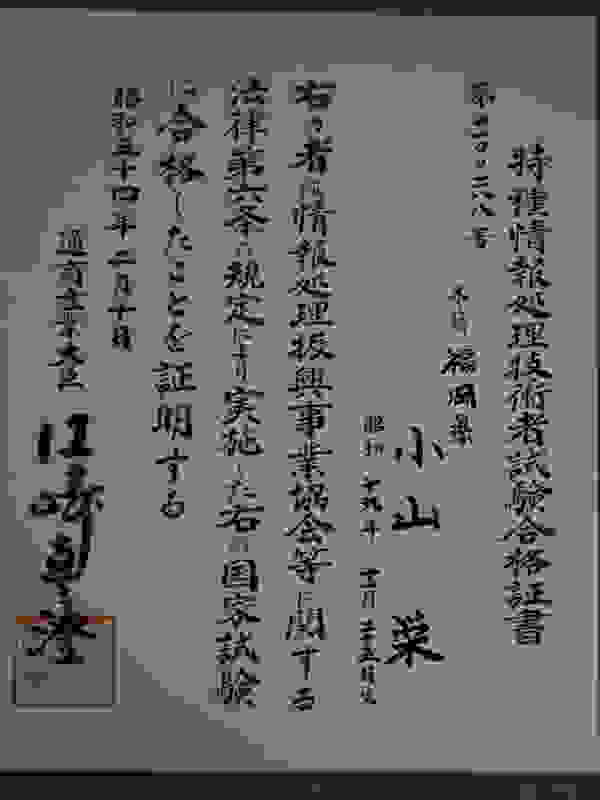 特種情報処理技術者試験合格証書
本籍 福岡県
小山 栄
右の者は情報処理振興事業協会等に関する
法律第六条の規定により実施した右の国家試験
に合格したことを証明する
昭和五十四年二月十
通商産業大臣
江崎真澄